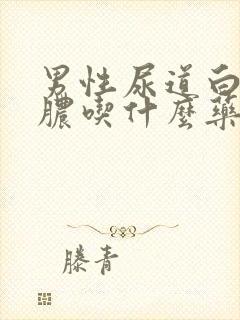 男性尿道白
膿喫什麼藥
滕青